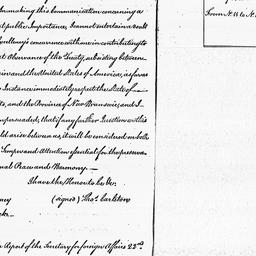 In making this Communication concerning a
public Importance, I cannot entertain a doubt
Excellency's concurrence with me in contributing to
Observance of the Treaty, subsisting between
and the United States of America, as far as
Instance immediately respect the State of
and the Province of New Brunswick; and I
persuaded, that if any further Question on this
arise between us, it will be considered on both
Temper and Attention essential for the preserva-
Peace and Harmony. —
I have the Honor to be &c.
(signed) Thos. Carleton
Report of the Secretary for foreign Affairs 22d
From N. 11 to N.